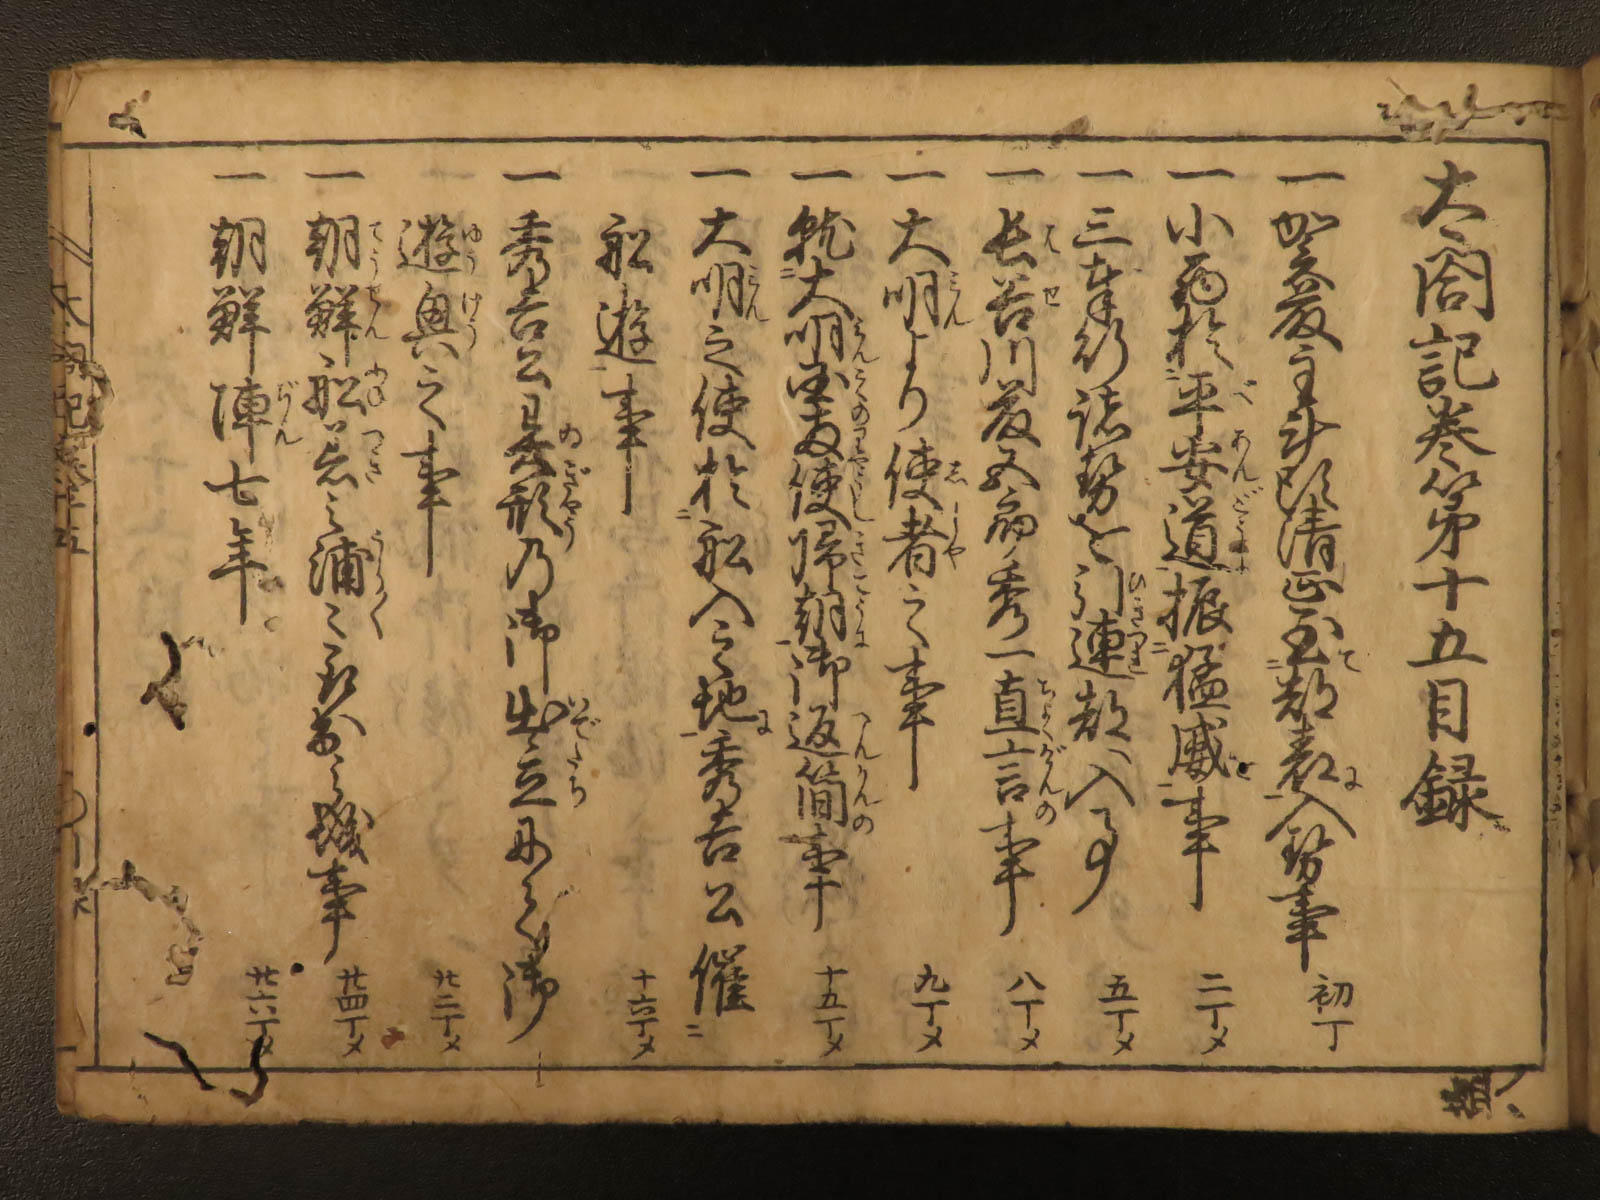 太閤記巻第十五目録
一加藤主計頭清正至都表入勢事 初丁
一小西於平安道振猛威事 二丁メ
一三奉行諸勢を引連都へ入る事 五丁メ
一長谷川藤五郎秀一直言事 八丁メ
一大明より使者之事 九丁メ
一就大明両使帰朝御返簡事 十五丁メ
一大明之使於船入之地秀吉公催
船遊事 十六丁メ
一秀吉公異形乃御出立にて御
遊興之事 廿二丁メ
一朝鮮船着之浦々 城事 廿四丁メ
一朝鮮陣七年 廿六丁メ